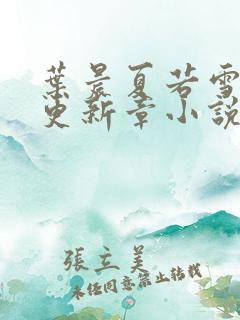 葉晨夏若雪
更新章小說
張立美
未經同意禁止轉載